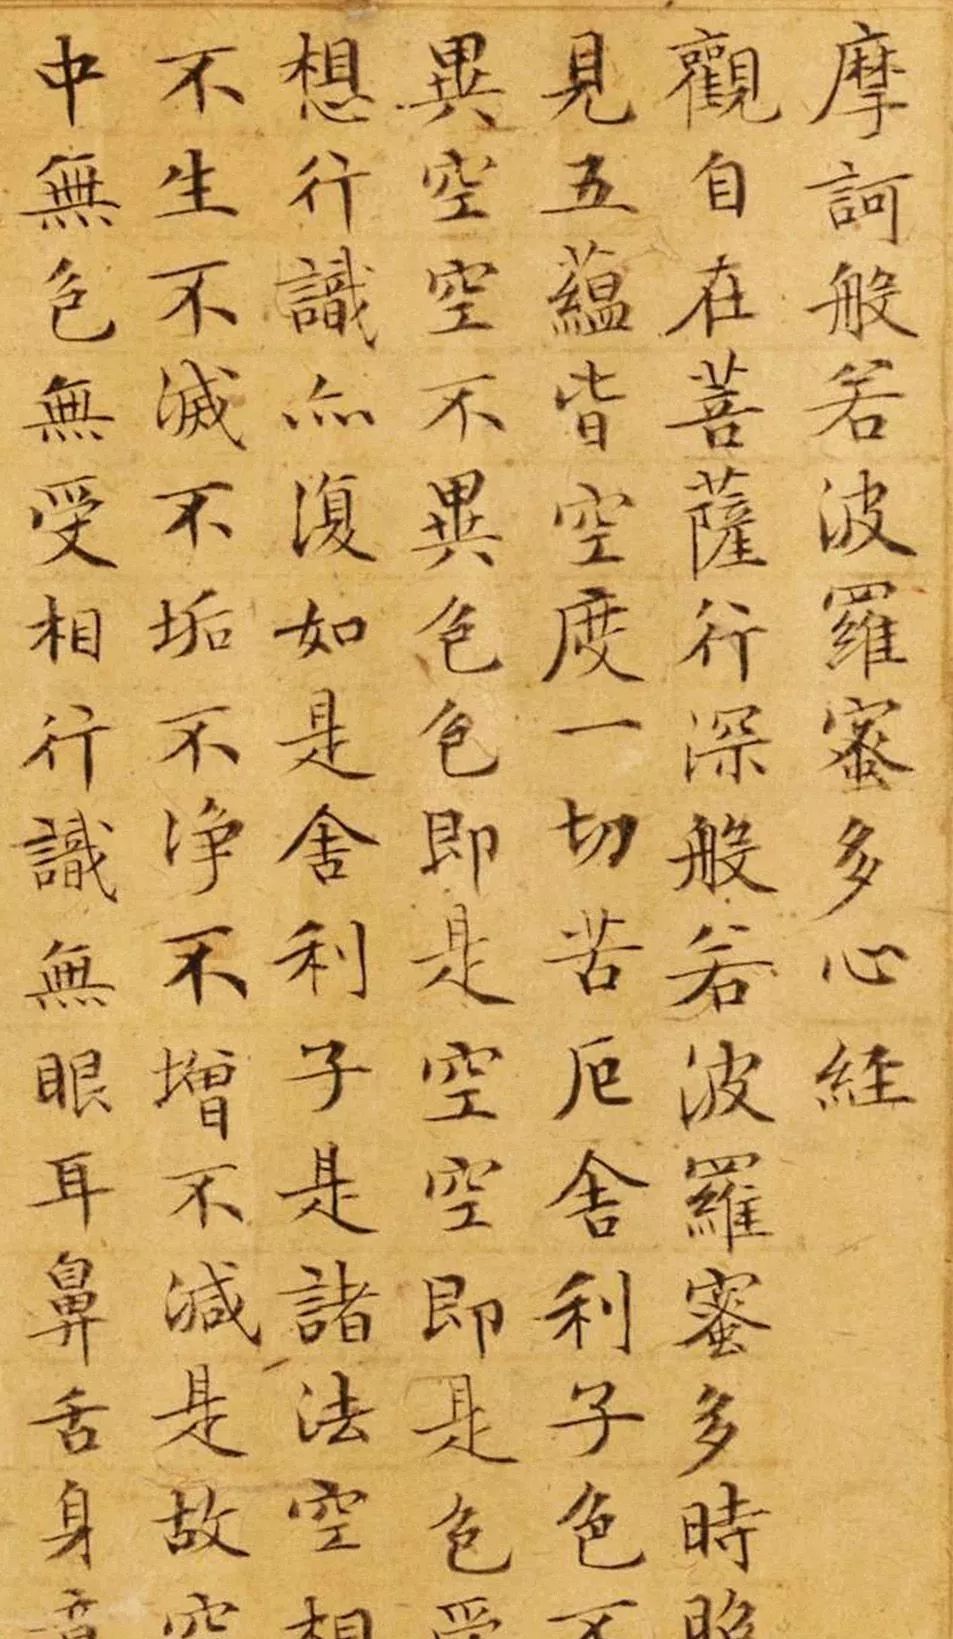 摩訶般若波羅蜜多心経
觀自在菩薩行深般若波羅蜜多時照
見五蘊皆空度一切苦厄舍利子色不
異空空不異色色即是空空即是色受
想行識亦復如是舍利子是諸法空相
不生不滅不垢不浄不增不減是故空
中無色無受相行識無眼耳鼻舌身意